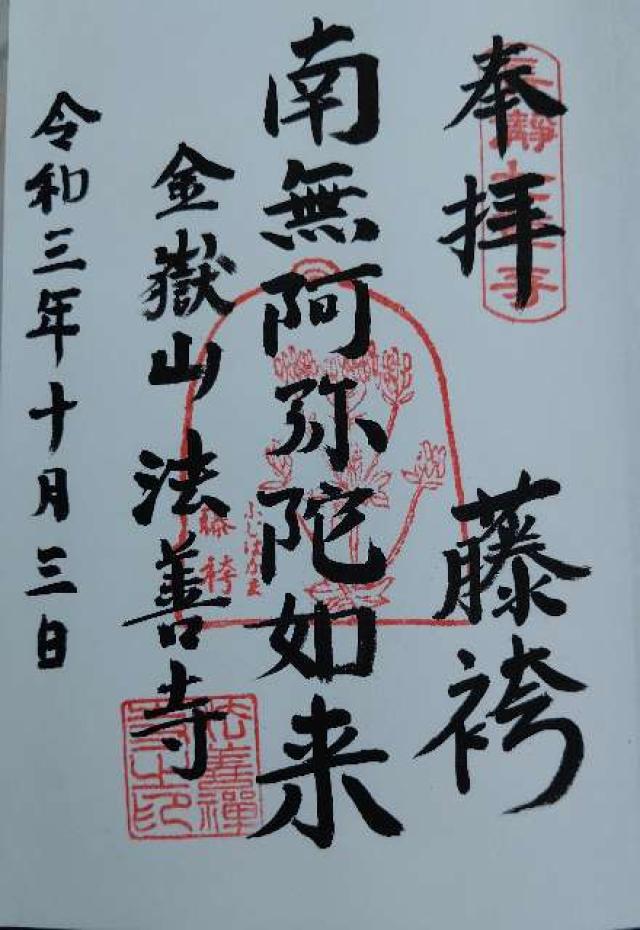 奉拝
藤袴
南無阿弥陀如来
ふじばかま
藤袴
金嶽山 法善寺
法善禅寺之印
令和三年十月三日